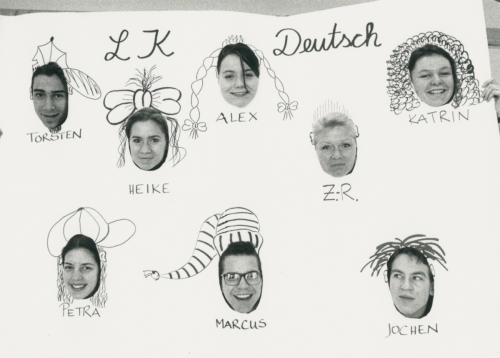 LK Deutsch
TORSTEN
HEIKE
ALEX
Z.-R.
KATRIN
PETRA
MARCUS
JOCHEN